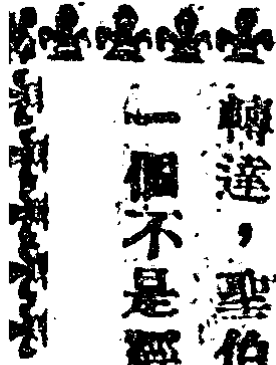 轉達，聖伯
一個不是經